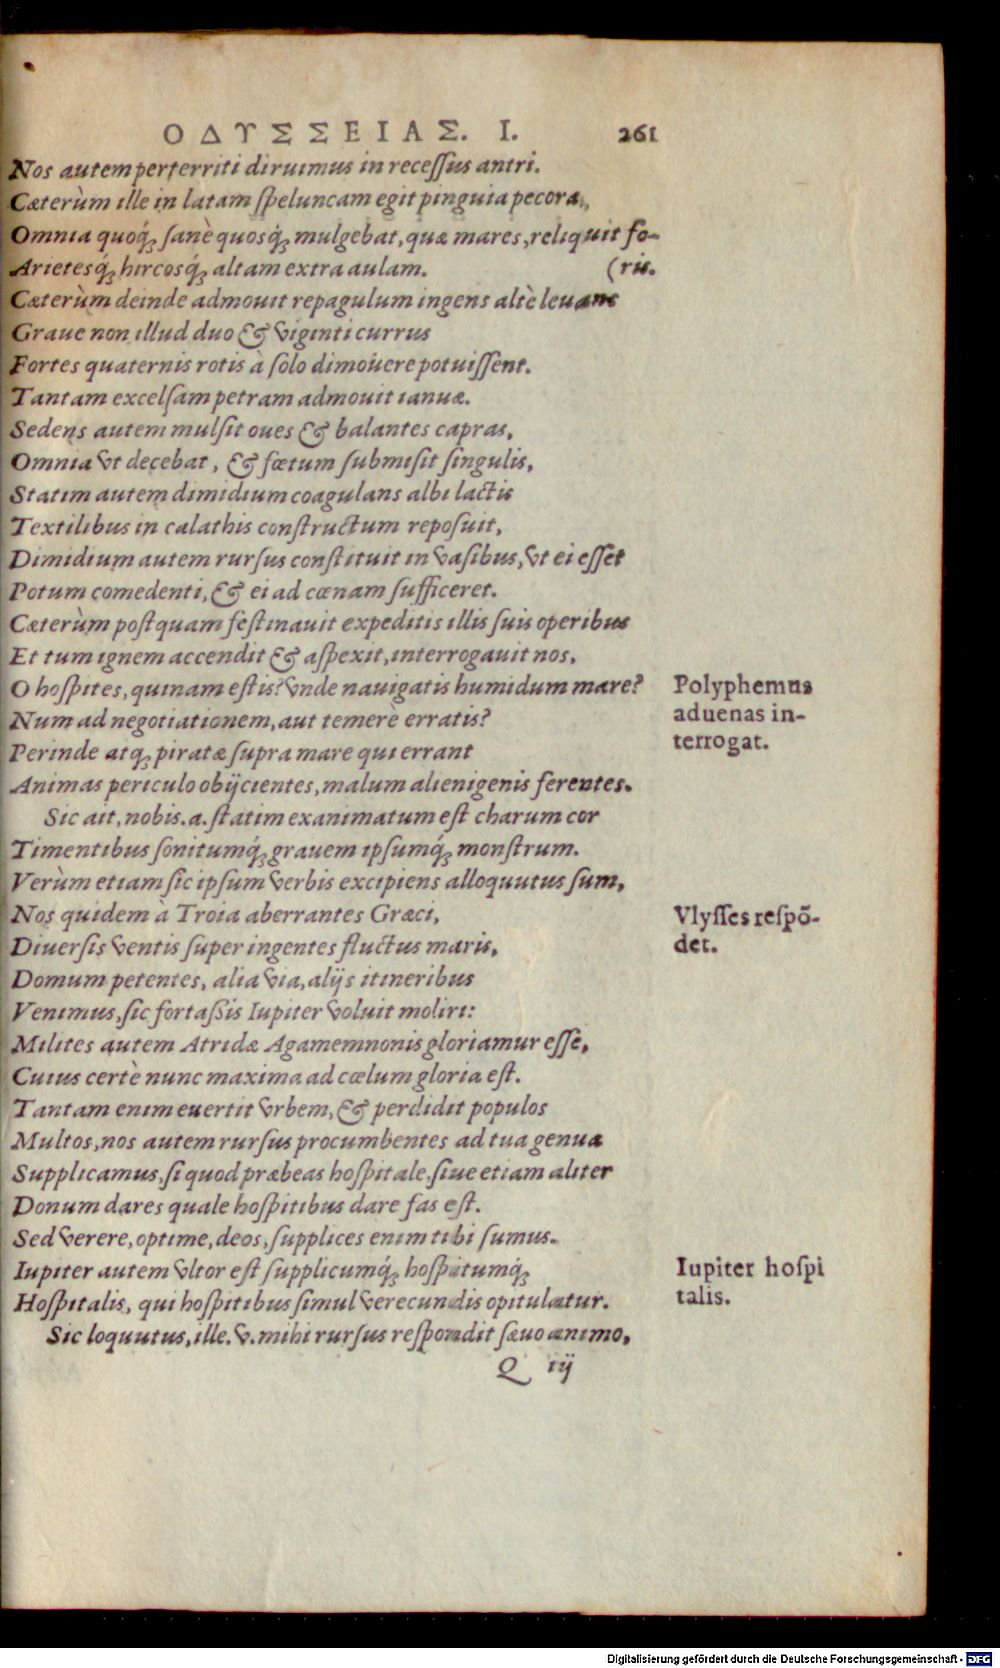 ΟΔΥΣΣΕΙΑΣ. Ι. 261
Nos autem perterriti diruimus in recessus antri.
Cæterùm ille in latam speluncam egit pinguia pecora,
Omnia quoq́; sanè quosq́; mulgebat, quæ mares, reliquit fo-
Arietesq́; hircosq́; altam extra aulam. (ris.
Cæterùm deinde admouit repagulum ingens altè leuans
Graue non illud duo & viginti currus
Fortes quaternis rotis à solo dimouere potuissent.
Tantam excelsam petram admouit ianuæ.
Sedens autem mulsit oues & balantes capras,
Omnia vt decebat, & fœtum submisit singulis,
Statim autem dimidium coagulans albi lactis
Textilibus in calathis constructum reposuit,
Dimidium autem rursus constituit in vasibus, vt ei esset
Potum comedenti, & ei ad cœnam sufficeret.
Cæterùm postquam festinauit expeditis illis suis operibus
Et tum ignem accendit & aspexit, interrogauit nos,
O hospites, quinam estis? vnde nauigatis humidum mare?
Polyphemus
aduenas in-
terrogat.
Num ad negotiationem, aut temerè erratis?
Perinde atq; piratæ supra mare qui errant
Animas periculo obijcientes, malum alienigenis ferentes.
Sic ait, nobis .a. statim exanimatum est charum cor
Timentibus sonitumq́; grauem ipsumq́; monstrum.
Verùm etiam sic ipsum verbis excipiens alloquutus sum,
Nos quidem à Troia aberrantes Græci,
Vlysses respõ-
det.
Diuersis ventis super ingentes fluctus maris,
Domum petentes, alia via, alijs itineribus
Venimus, sic fortassis Iupiter voluit moliri:
Milites autem Atridæ Agamemnonis gloriamur esse,
Cuius certè nunc maxima ad cœlum gloria est.
Tantam enim euertit vrbem, & perdidit populos
Multos, nos autem rursus procumbentes ad tua genua
Supplicamus, si quod præbeas hospitale, siue etiam aliter
Donum dares quale hospitibus dare fas est.
Sed verere, optime, deos, supplices enim tibi sumus.
Iupiter autem vltor est supplicumq́; hospitumq́;
Iupiter hospi
talis.
Hospitalis, qui hospitibus simul verecundis opitulatur.
Sic loquutus, ille .v. mihi rursus respondit sæuo animo,
Q iij
Digitalisierung gefördert durch die Deutsche Forschungsgemeinschaft - DFG